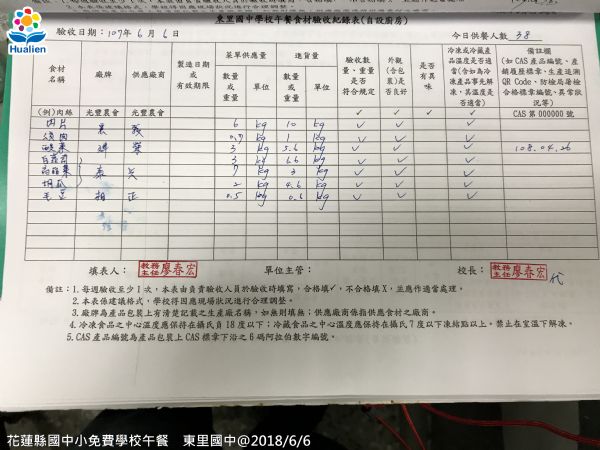 Hualien
東里國中學校午餐食材驗收紀錄表(自設廚房)
驗收日期：107年 6月 6日
今日供餐人數 38
食材名稱 廠牌 供應廠商 製造日期或有效期限 菜單供應量 進貨量 驗收數量、重量是否符合規定 外觀(含包裝)是否良好 是否有異味 冷凍或冷藏產品溫度是否適當(如為冷凍產品事先解凍，其溫度是否適當) 備註欄(如CAS產品編號、產銷履歷標章、生產追溯QR Code、防檢局屠檢合格標章編號、異常狀況等)
數量或重量 單位 數量或重量 單位
(例)肉絲 光豐農會 光豐農會 ✓ ✓ ✓ ✓ CAS 第 000000 號
肉片 6 kg 10 kg ✓ ✓ ✓
kg 1 kg ✓ ✓ ✓
酸菜 榮 3 kg 5.6 kg ✓ ✓ ✓ 108.04.26
3 kg 6.6 kg ✓ ✓ ✓
高麗菜 泰 7 kg kg ✓ ✓ ✓
胡瓜 2 kg 4.6 kg ✓ ✓ ✓
毛豆 正 0.5 kg 0.6 kg ✓ ✓ ✓
填表人： 教務主任 廖春宏 單位主管： 校長： 教務主任 廖春宏 代
備註：1.每週驗收至少1次，本表由負責驗收人員於驗收時填寫，合格填✓，不合格填X，並應作適當處理。
2.本表係建議格式，學校得因應現場狀況進行合理調整。
3.廠牌為產品包裝上有清楚記載之生產廠名稱，如無則填無；供應廠商係指供應食材之廠商。
4.冷凍食品之中心溫度應保持在攝氏負18度以下；冷藏食品之中心溫度應保持在攝氏7度以下凍結點以上。禁止在室溫下解凍。
5.CAS產品編號為產品包裝上CAS標章下沿之6碼阿拉伯數字編號。
花蓮縣國中小免費學校午餐 東里國中@2018/6/6